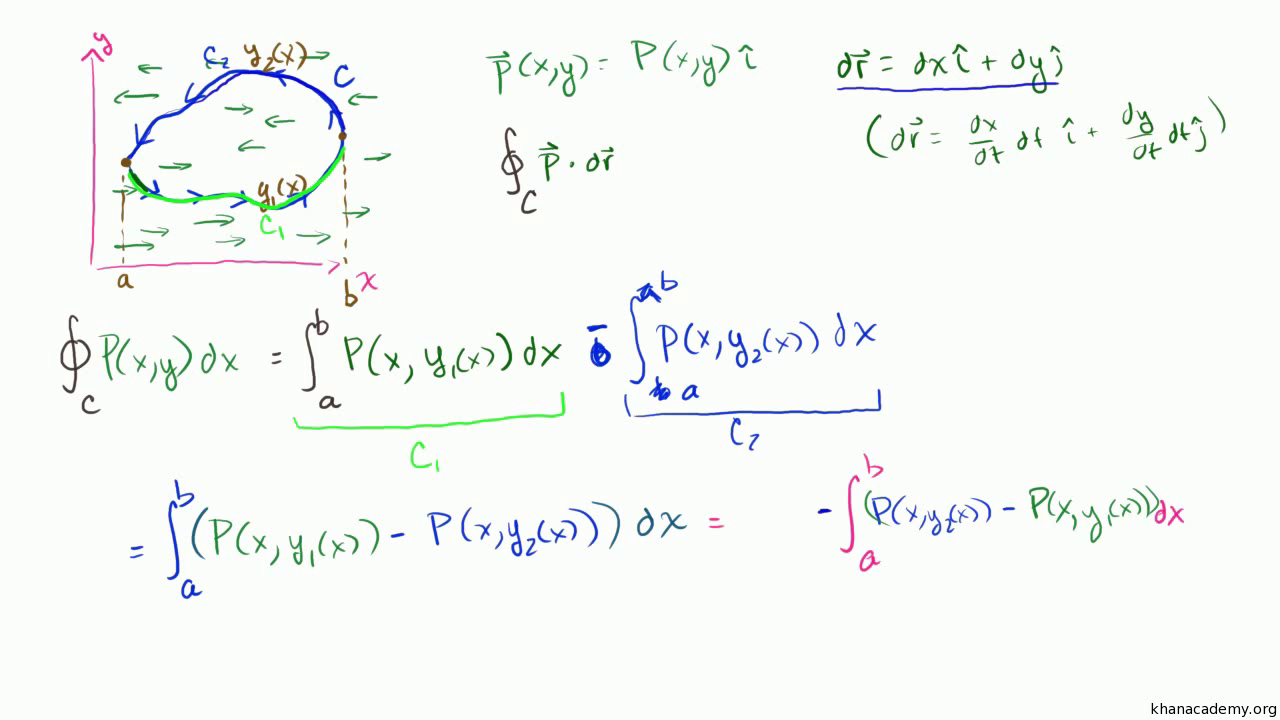 y
C₂ y₂(x)
C
y₁(x)
C₁
a
b
x
P⃗(x,y) = P(x,y) î
∮_C P⃗ · dr⃗
dr⃗ = dx î + dy ĵ
(dr⃗ = dx/dt dt î + dy/dt dt ĵ)
∮_C P(x,y) dx = ∫_a^b P(x, y₁(x)) dx - ∫_a^b P(x, y₂(x)) dx
C₁
C₂
= ∫_a^b (P(x, y₁(x)) - P(x, y₂(x))) dx = - ∫_a^b (P(x, y₂(x)) - P(x, y₁(x))) dx
khanacademy.org